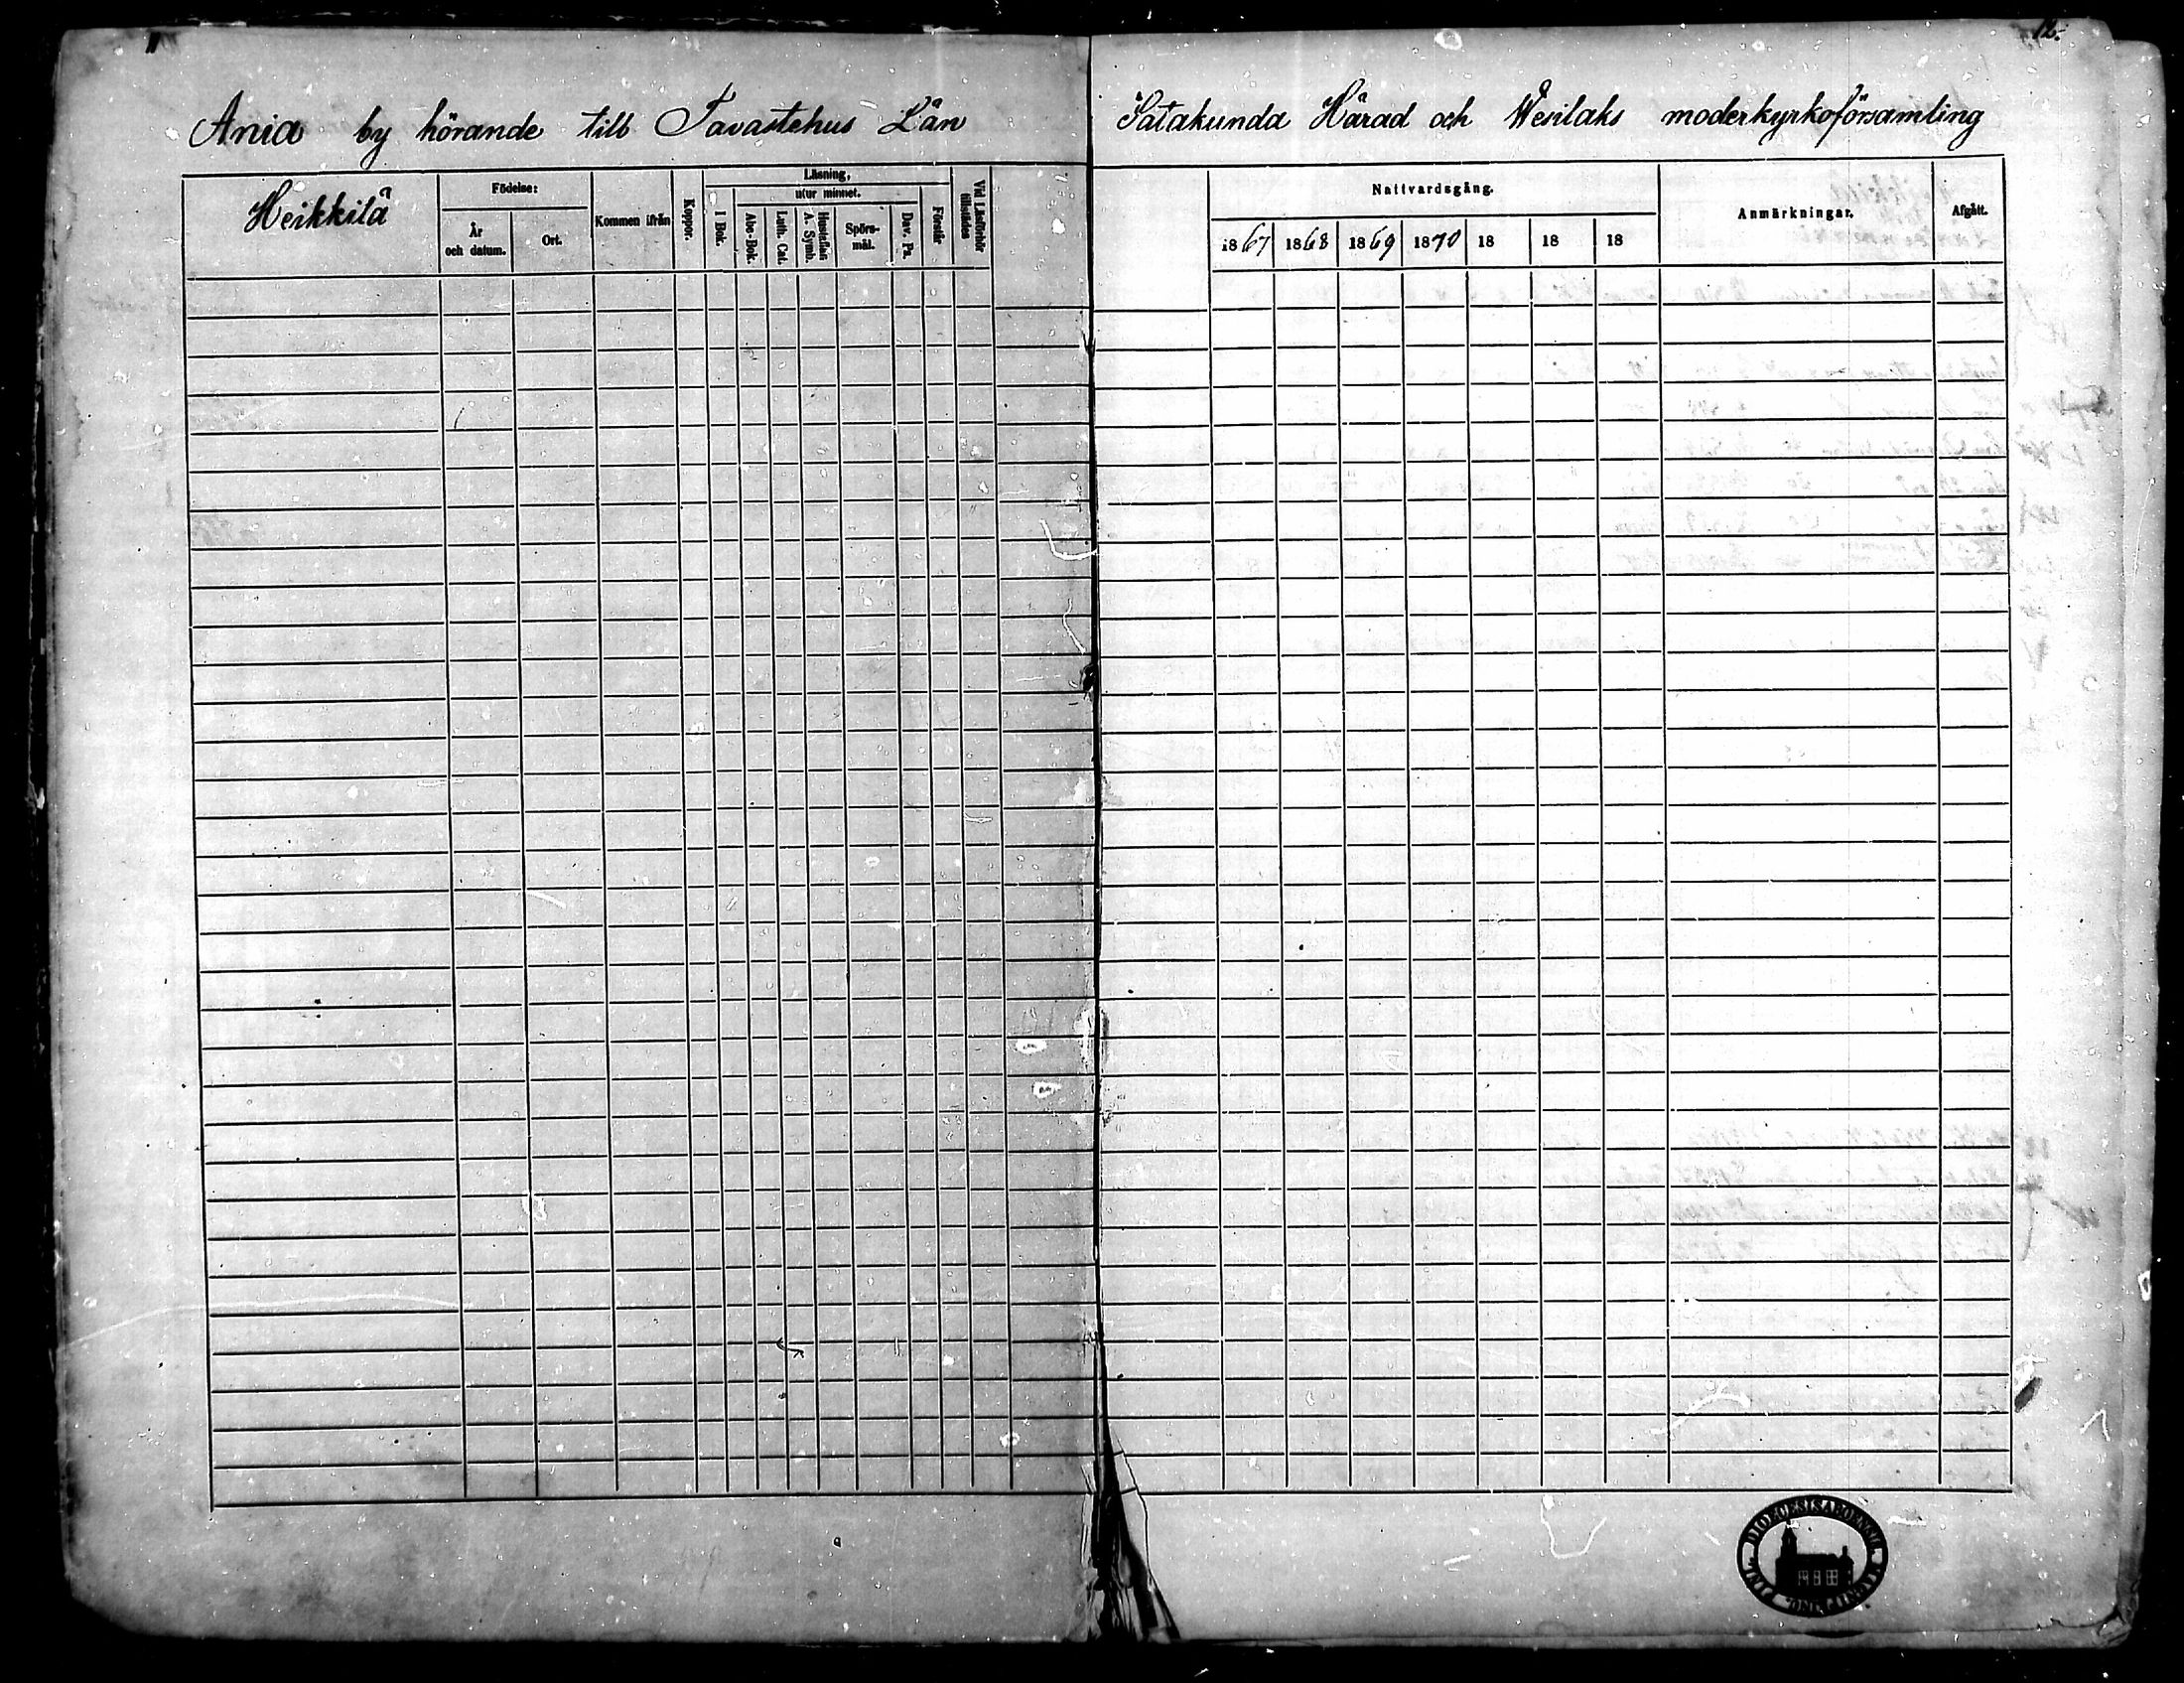 11
12.
Ania by hörande till Tavastehus Län
Satakunda Härad och Wesilaks moderkyrkoförsamling
Heikkilä
Födelse:
År och datum.
Ort.
Kommen ifrån
Koppor.
Läsning,
utur minnet.
I Bok.
Abc-Bok.
Luth. Cat.
Hustaflan A. Symb.
Spörs-mål.
Dav. Ps.
Förstår
Vid Läsförhör tillstädes
Nattvardsgång.
1867 1868 1869 1870 18 18 18
Anmärkningar.
Afgått.